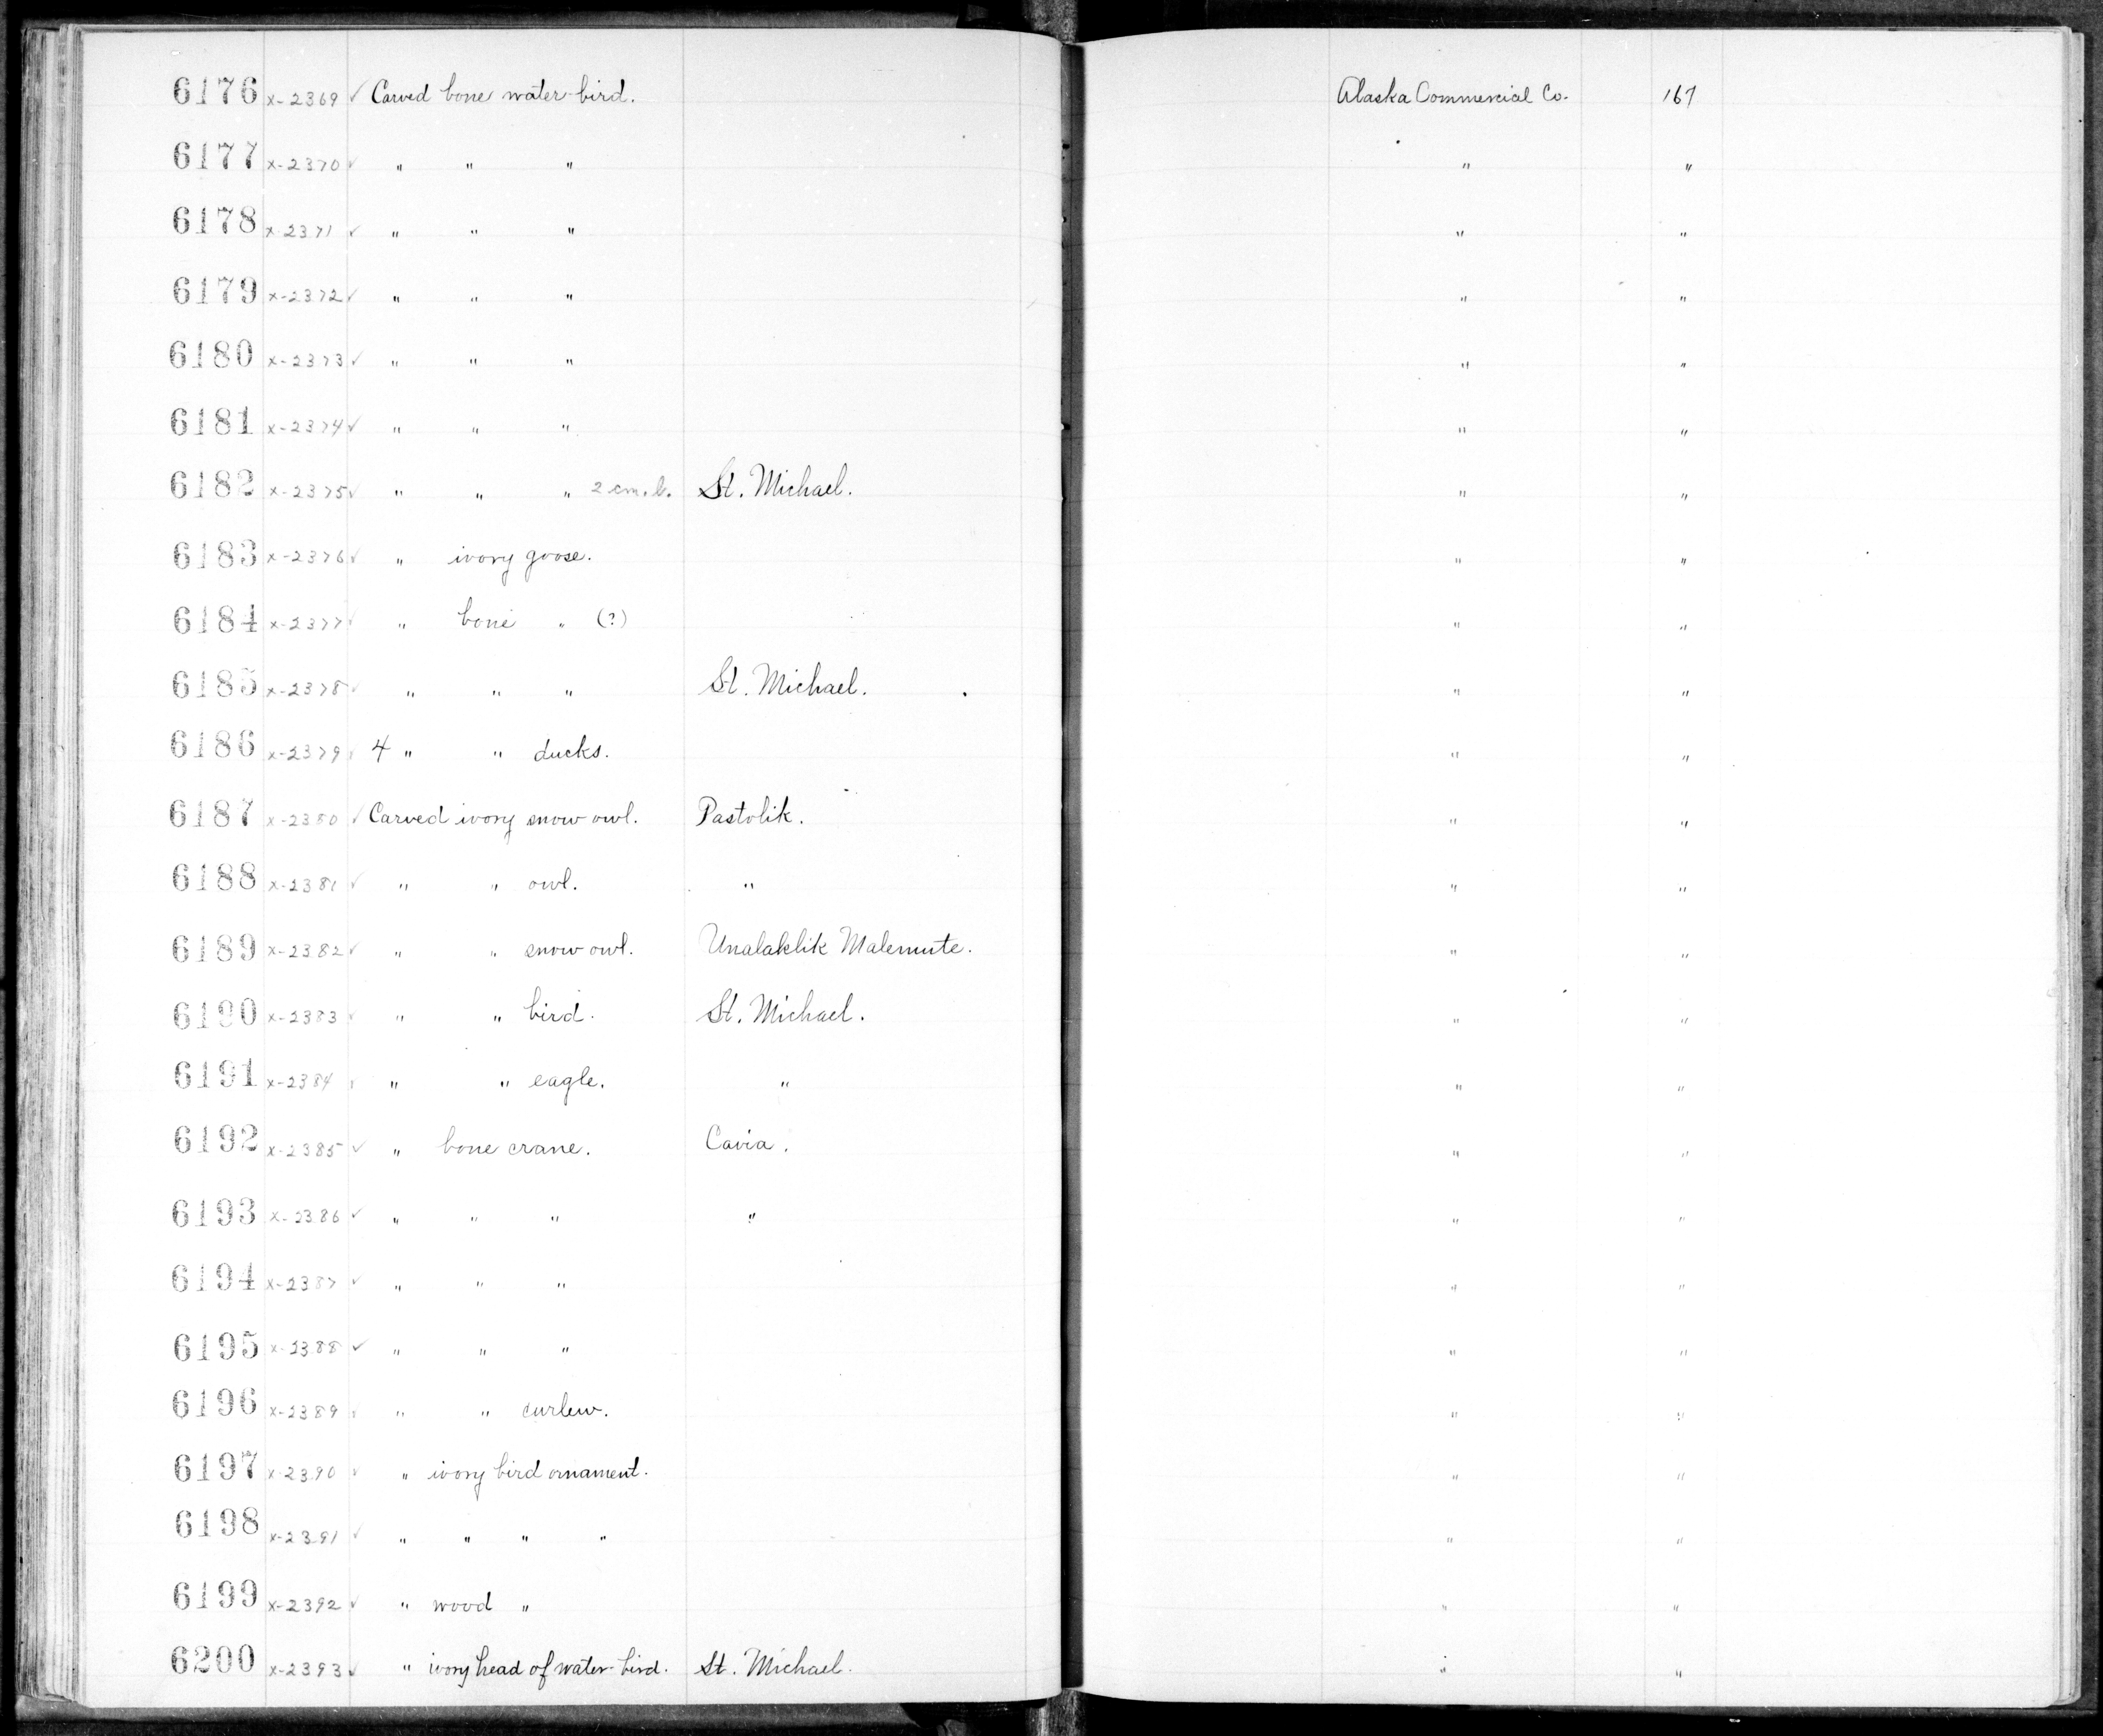 6176 x-2369 ✓ Carved bone water-bird. Alaska Commercial Co. 167
6177 x-2370 ✓ " " " " "
6178 x-2371 ✓ " " " " "
6179 x-2372 ✓ " " " " "
6180 x-2373 ✓ " " " " "
6181 x-2374 ✓ " " " " "
6182 x-2375 ✓ " " " 2 cm. b. St. Michael. " "
6183 x-2376 ✓ " ivory goose. " "
6184 x-2377 ✓ " bone " (?) " "
6185 x-2378 ✓ " " " St. Michael. " "
6186 x-2379 ✓ 4 " " ducks. " "
6187 x-2380 ✓ Carved ivory snow owl. Pastolik. " "
6188 x-2381 ✓ " " owl. " " "
6189 x-2382 ✓ " " snow owl. Unalaklik Malemute. " "
6190 x-2383 ✓ " " bird. St. Michael. " "
6191 x-2384 ✓ " " eagle. " " "
6192 x-2385 ✓ " bone crane. Cavia. " "
6193 x-2386 ✓ " " " " " "
6194 x-2387 ✓ " " " " "
6195 x-2388 ✓ " " " " "
6196 x-2389 ✓ " " curlew. " "
6197 x-2390 ✓ " ivory bird ornament. " "
6198 x-2391 ✓ " " " " " "
6199 x-2392 ✓ " wood " " "
6200 x-2393 ✓ " ivory head of water-bird. St. Michael. " "